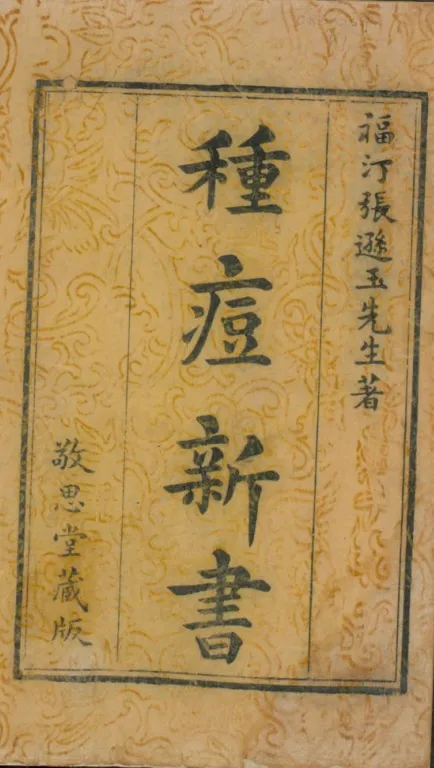 福汀張遜玉先生著
種痘新書
敬思堂藏版